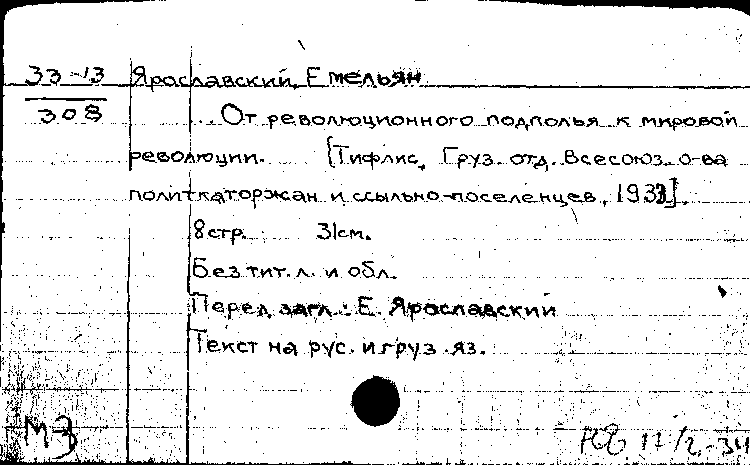 33-13 Ярославский, Емельян
308 ...От революционного подполья к мировой
революции. [Тифлис, Груз. отд. Всесоюз. о-ва
политкаторжан и ссыльно-поселенцев, 1933].
8 стр. 31 см.
Без тит. л. и обл.
Перед загл.: Е. Ярославский
Текст на рус. и груз. яз.